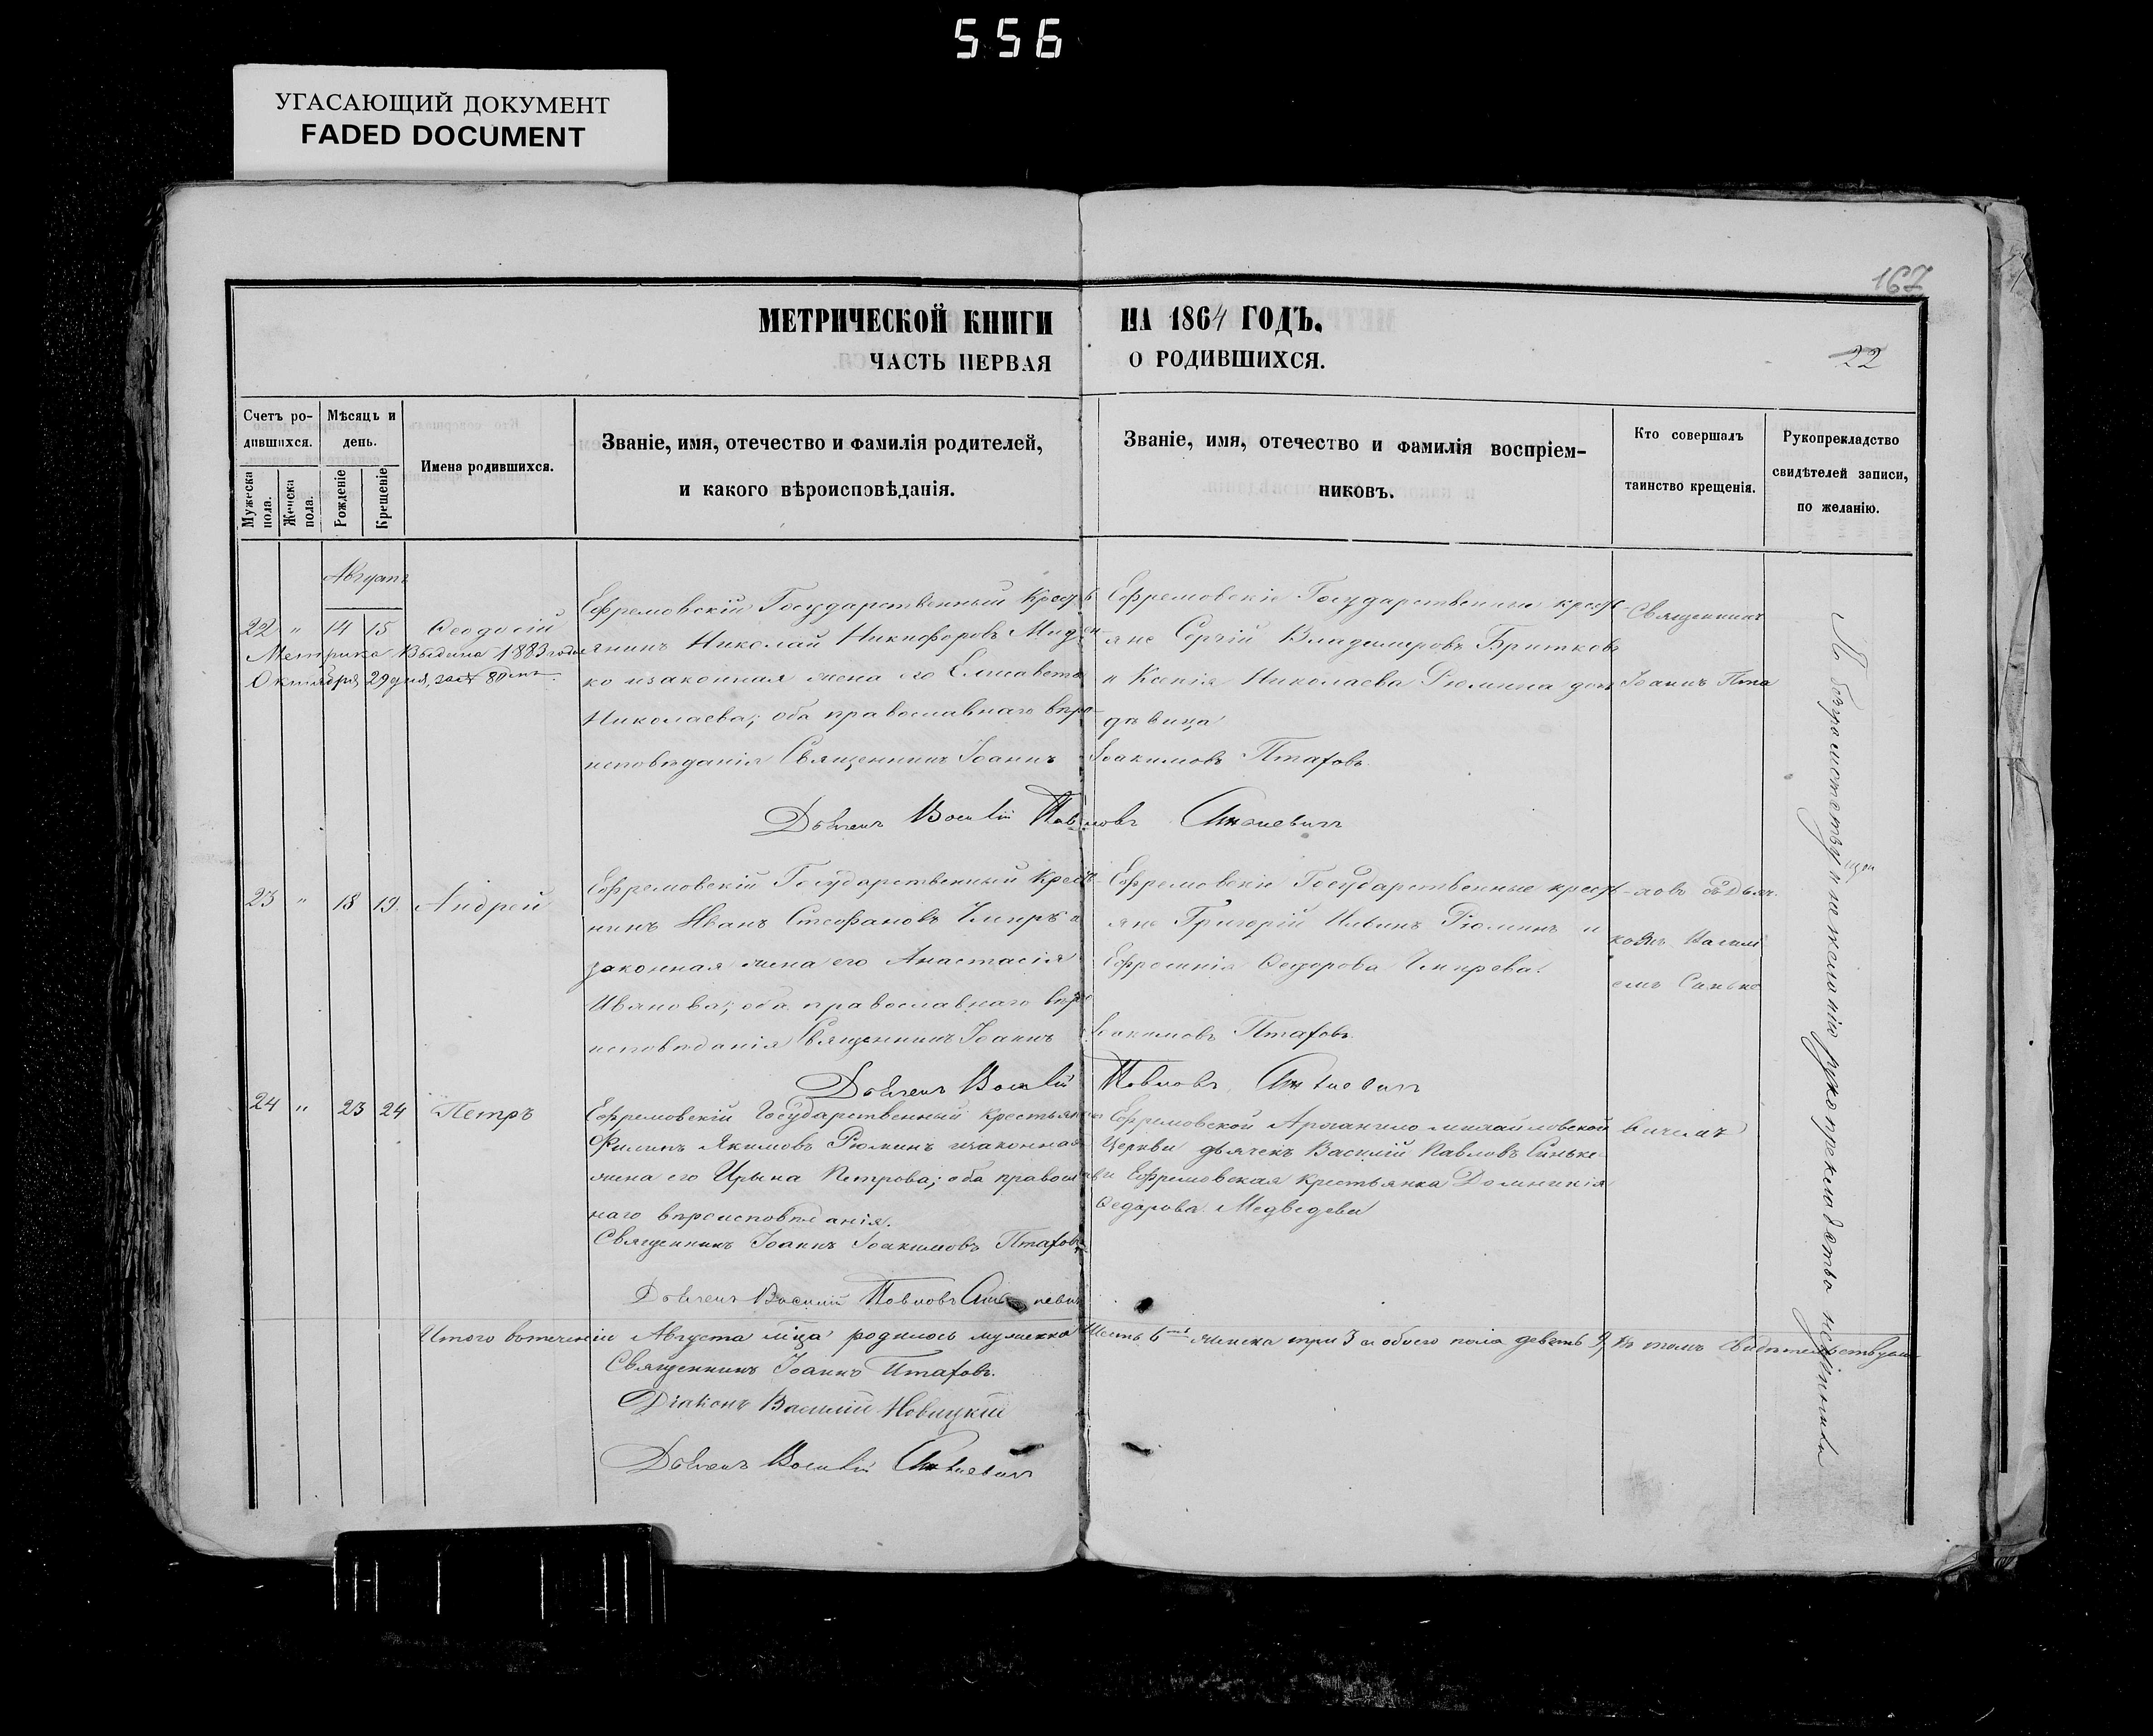 556
УГАСАЮЩИЙ ДОКУМЕНТ
FADED DOCUMENT
167
МЕТРИЧЕСКОЙ КНИГИ НА 1864 ГОДЪ.
ЧАСТЬ ПЕРВАЯ О РОДИВШИХСЯ.
22
Счетъ родившихся.
Мужеска пола.
Женска пола.
Мѣсяцъ и день.
Рожденіе
Крещеніе
Имена родившихся.
Званіе, имя, отечество и фамилія родителей,
и какого вѣроисповѣданія.
Званіе, имя, отечество и фамилія воспріем-
никовъ.
Кто совершалъ
таинство крещенія.
Рукоприкладство
свидѣтелей записи,
по желанію.
Августъ
22 " 14 15 Ѳеодосій
Метрика выдана 1883 года
Октября 29 дня, за № 80
Ефремовскій Государственный Кресть
янинъ Николай Никифоровъ
ко изаконная жена его Елисавета
Николаева; оба православнаго вѣро-
исповѣданія Священникъ Іоаннъ Іоакимовъ Птаховъ
Дьячекъ Василій Павловъ Синькевичъ
Ефремовскіе Государственные крест-
яне Сергій Владимировъ Бритковъ
и Ксенія Николаева Рюмина дочь
дѣвица
Священникъ
Іоаннъ Пта
23 " 18 19 Андрей
Ефремовскій Государственный Крестья
нинъ Иванъ Стефановъ Чмиръ и
законная жена его Анастасія
Иванова; оба православнаго вѣро
исповѣданія Священникъ Іоаннъ Іоакимовъ Птаховъ
Дьячекъ Василій Павловъ Синькевичъ
Ефремовскіе Государственные крест-
яне Григорій Ильинъ Рюминъ и
Ефросинія Ѳедорова Чмирева.
ховъ съ Дьяч-
комъ Васили
емъ Синьке
24 " 23 24 Петръ
Ефремовскій Государственный крестьянинъ
Филипъ Якимовъ Рюминъ изаконная
жена его Ирына Петрова; оба православ
наго вѣроисповѣданія.
Священникъ Іоаннъ Іоакимовъ Птаховъ
Дьячекъ Василій Павловъ Синькевичъ
Ефремовской Архангело михайловской
Церкви дьячекъ Василій Павловъ Синьке
и Ефремовская крестьянка Домникія
Ѳедорова Медведева
вичемъ
Итого втеченіи Августа м͠ца родилось мужеска Шесть 6 женска три 3 а обоего пола девять 9, въ томъ свидѣтельствуем
Священникъ Іоаннъ Птаховъ.
Діаконъ Василій Новицкій
Дьячекъ Василій Синькевичъ
По безграмотству и не желанію рукоприкладства неучинили